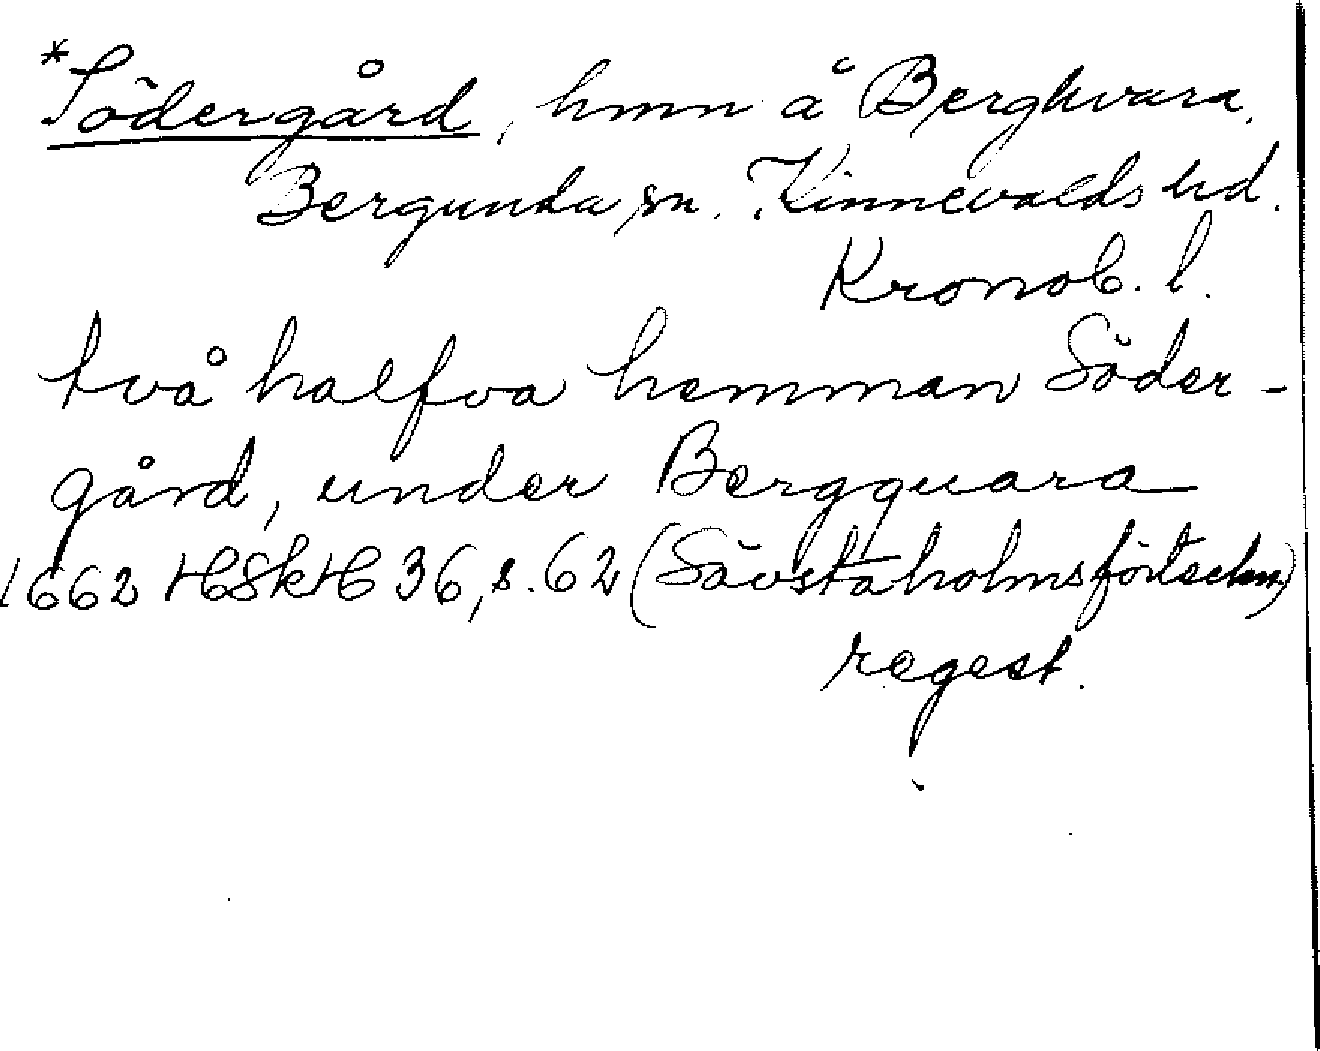 *Södergård, hmn å Bergkvara,
Bergunda sn. Kinnevalds hd.
Kronob. l.
två halfva hemman Söder-
gård, under Bergquara
1662 HSkH 36, s. 62 (Sävstaholmsförteckn.)
regest.